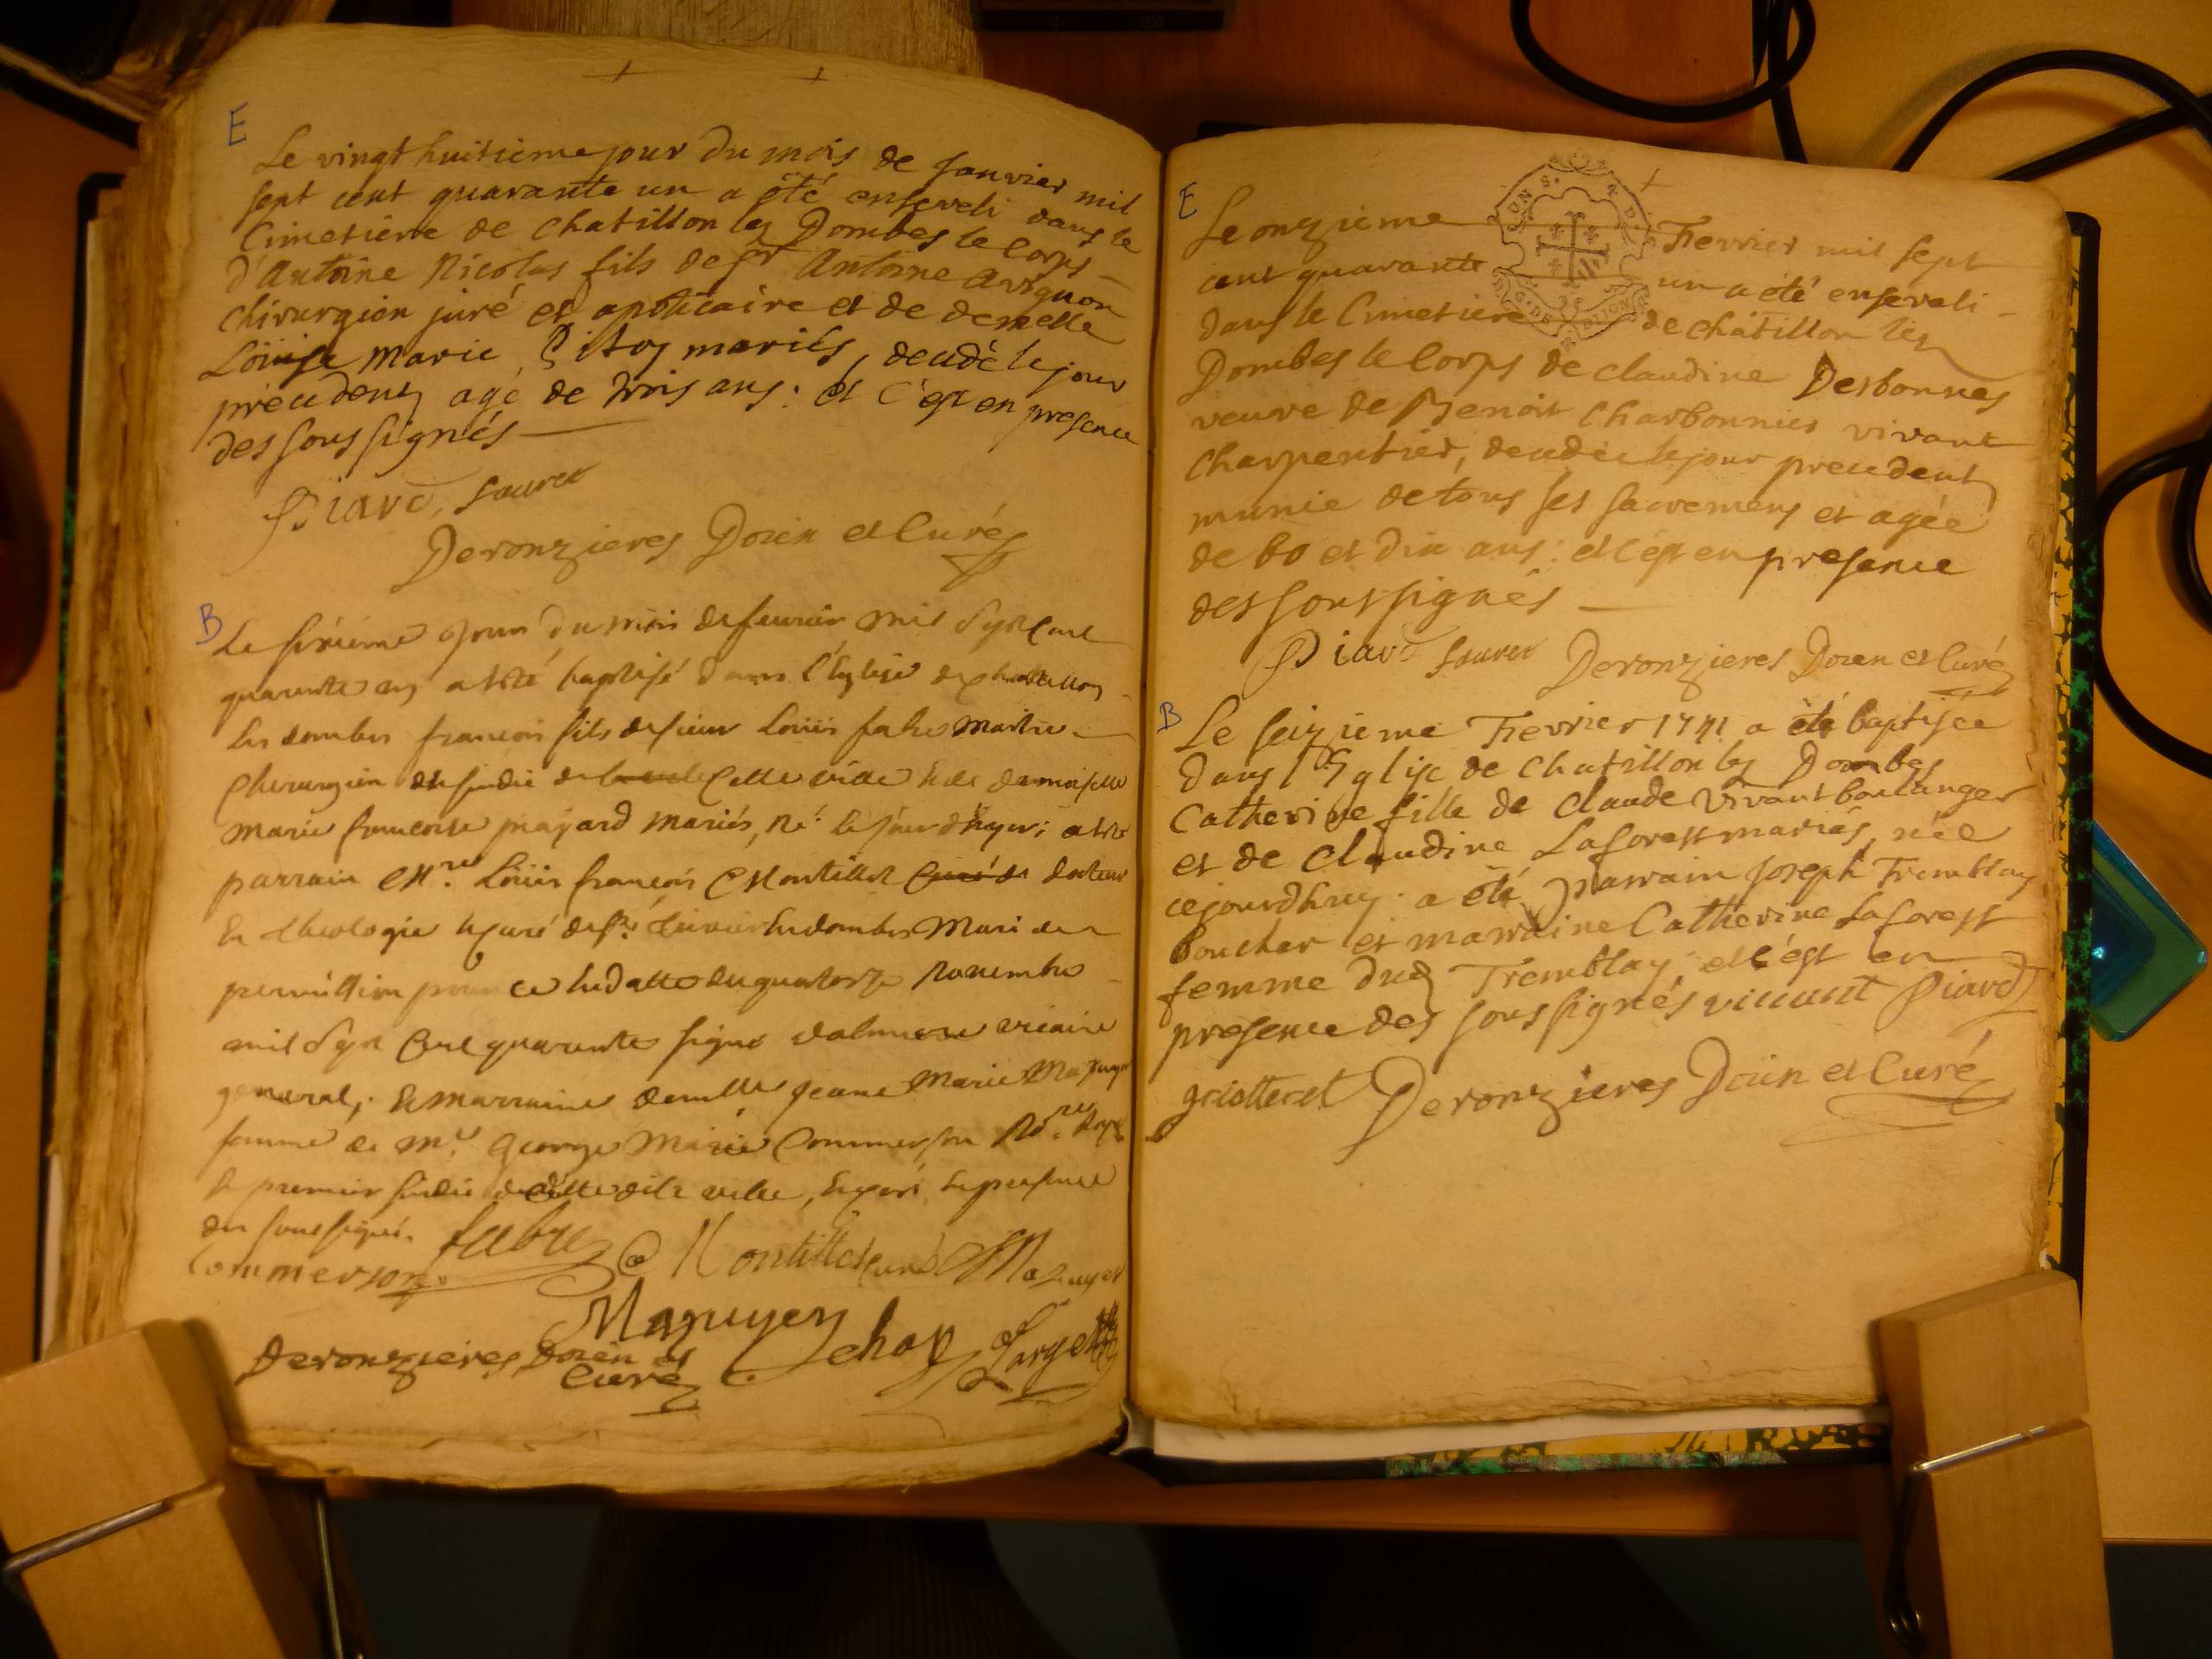 E
Le vingt huitieme jour du mois de Janvier mil
sept cent quarante un a été enseveli dans le
Cimetiere de Chatillon les Dombes le Corps
d'Antoine Nicolas fils de Sr Antoine Avignon
chirurgien juré et apoticaire et de demelle
Loüise Marie mariés, decedé le jour
precedent agé de trois ans : et c'est en presence
des soussignés
Piard, Sauret
Deronzieres Doïen et Curé
B
Le sixieme Jour du mois de feurier mil Sept Cent
quarante un a esté baptisé dans l'Eglise de chatillon
les dombes francois fils de sieur Loüis fabre Maitre
Chirurgien et sindic de Cette ville & de demoiselle
Marie francoise mariés, né le jour d'hyer; a esté
parrain Mre Loüis francois Montillet Curé de docteur
En theologie & curé de St les dombes Muni de
permission pour ce En datte du quatorze Novembre
mil Sept Cent quarante signé vicaire
general, & marraine demelle Jeane Marie Mazuyer
femme de Mr George Marie Commerson Nore Royal
& premier sindic de cette dite ville, & ce en presence
des soussignés.
Commerson fabre Montillet Curé Mazuyer
Mazuyer
Deronzieres, Doïen et
Curé
E
Le onzieme Fevrier mil sept
cent quarante un a été enseveli
dans le Cimetiere de châtillon les
Dombes le Corps de claudine Desbonnes
veuve de Benoit Charbonnier vivant
Charpentier, decedée le jour precedent
munie de tous ses sacremens et agée
de 60 et dix ans : et c'est en presence
des soussignés
Piard Sauret Deronzieres Doïen et Curé
B
Le seizieme Fevrier 1741 a été baptisée
dans l'Eglise de Chatillon les Dombes
Catherine fille de Claude Vivant boulanger
et de Claudine Laforest mariés, née
cejourdhuy : a été parrain Joseph Tremblay
Boucher et marraine Catherine Laforest
femme dud Tremblay ; et c'est en
presence des soussignés vivant Piard
griotteret Deronzieres Doïen et Curé